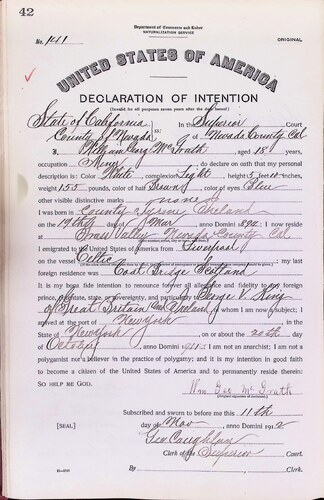 42
Department of Commerce and Labor
NATURALIZATION SERVICE
No. 141
ORIGINAL
UNITED STATES OF AMERICA
DECLARATION OF INTENTION
(Invalid for all purposes seven years after the date hereof)
State of California
In the Superior Court
County of Nevada ss:
of Nevada County Cal
I, William George McGrath, aged 18 years,
occupation Miner, do declare on oath that my personal
description is: Color White, complexion Light, height 5 feet 10 inches,
weight 155 pounds, color of hair Brown, color of eyes Blue
other visible distinctive marks none
I was born in County Tyrone Ireland
on the 19th day of Mar, anno Domini 1892; I now reside
at Grass Valley Nevada County Cal
I emigrated to the United States of America from Liverpool
on the vessel Celtic; my last
foreign residence was Coat Bridge Scotland
It is my bona fide intention to renounce forever all allegiance and fidelity to any foreign
prince, potentate, state, or sovereignty, and particularly to George V. King
of Great Britain and Ireland, of whom I am now a subject; I
arrived at the port of New York, in the
State of New York, on or about the 20th day
of October, anno Domini 1911; I am not an anarchist; I am not a
polygamist nor a believer in the practice of polygamy; and it is my intention in good faith
to become a citizen of the United States of America and to permanently reside therein:
SO HELP ME GOD.
Wm Geo McGrath
(Original signature of declarant)
Subscribed and sworn to before me this 11th
[SEAL]
day of Mar, anno Domini 1912
Geo Coughlan
Clerk of the Superior Court.
By, Clerk.